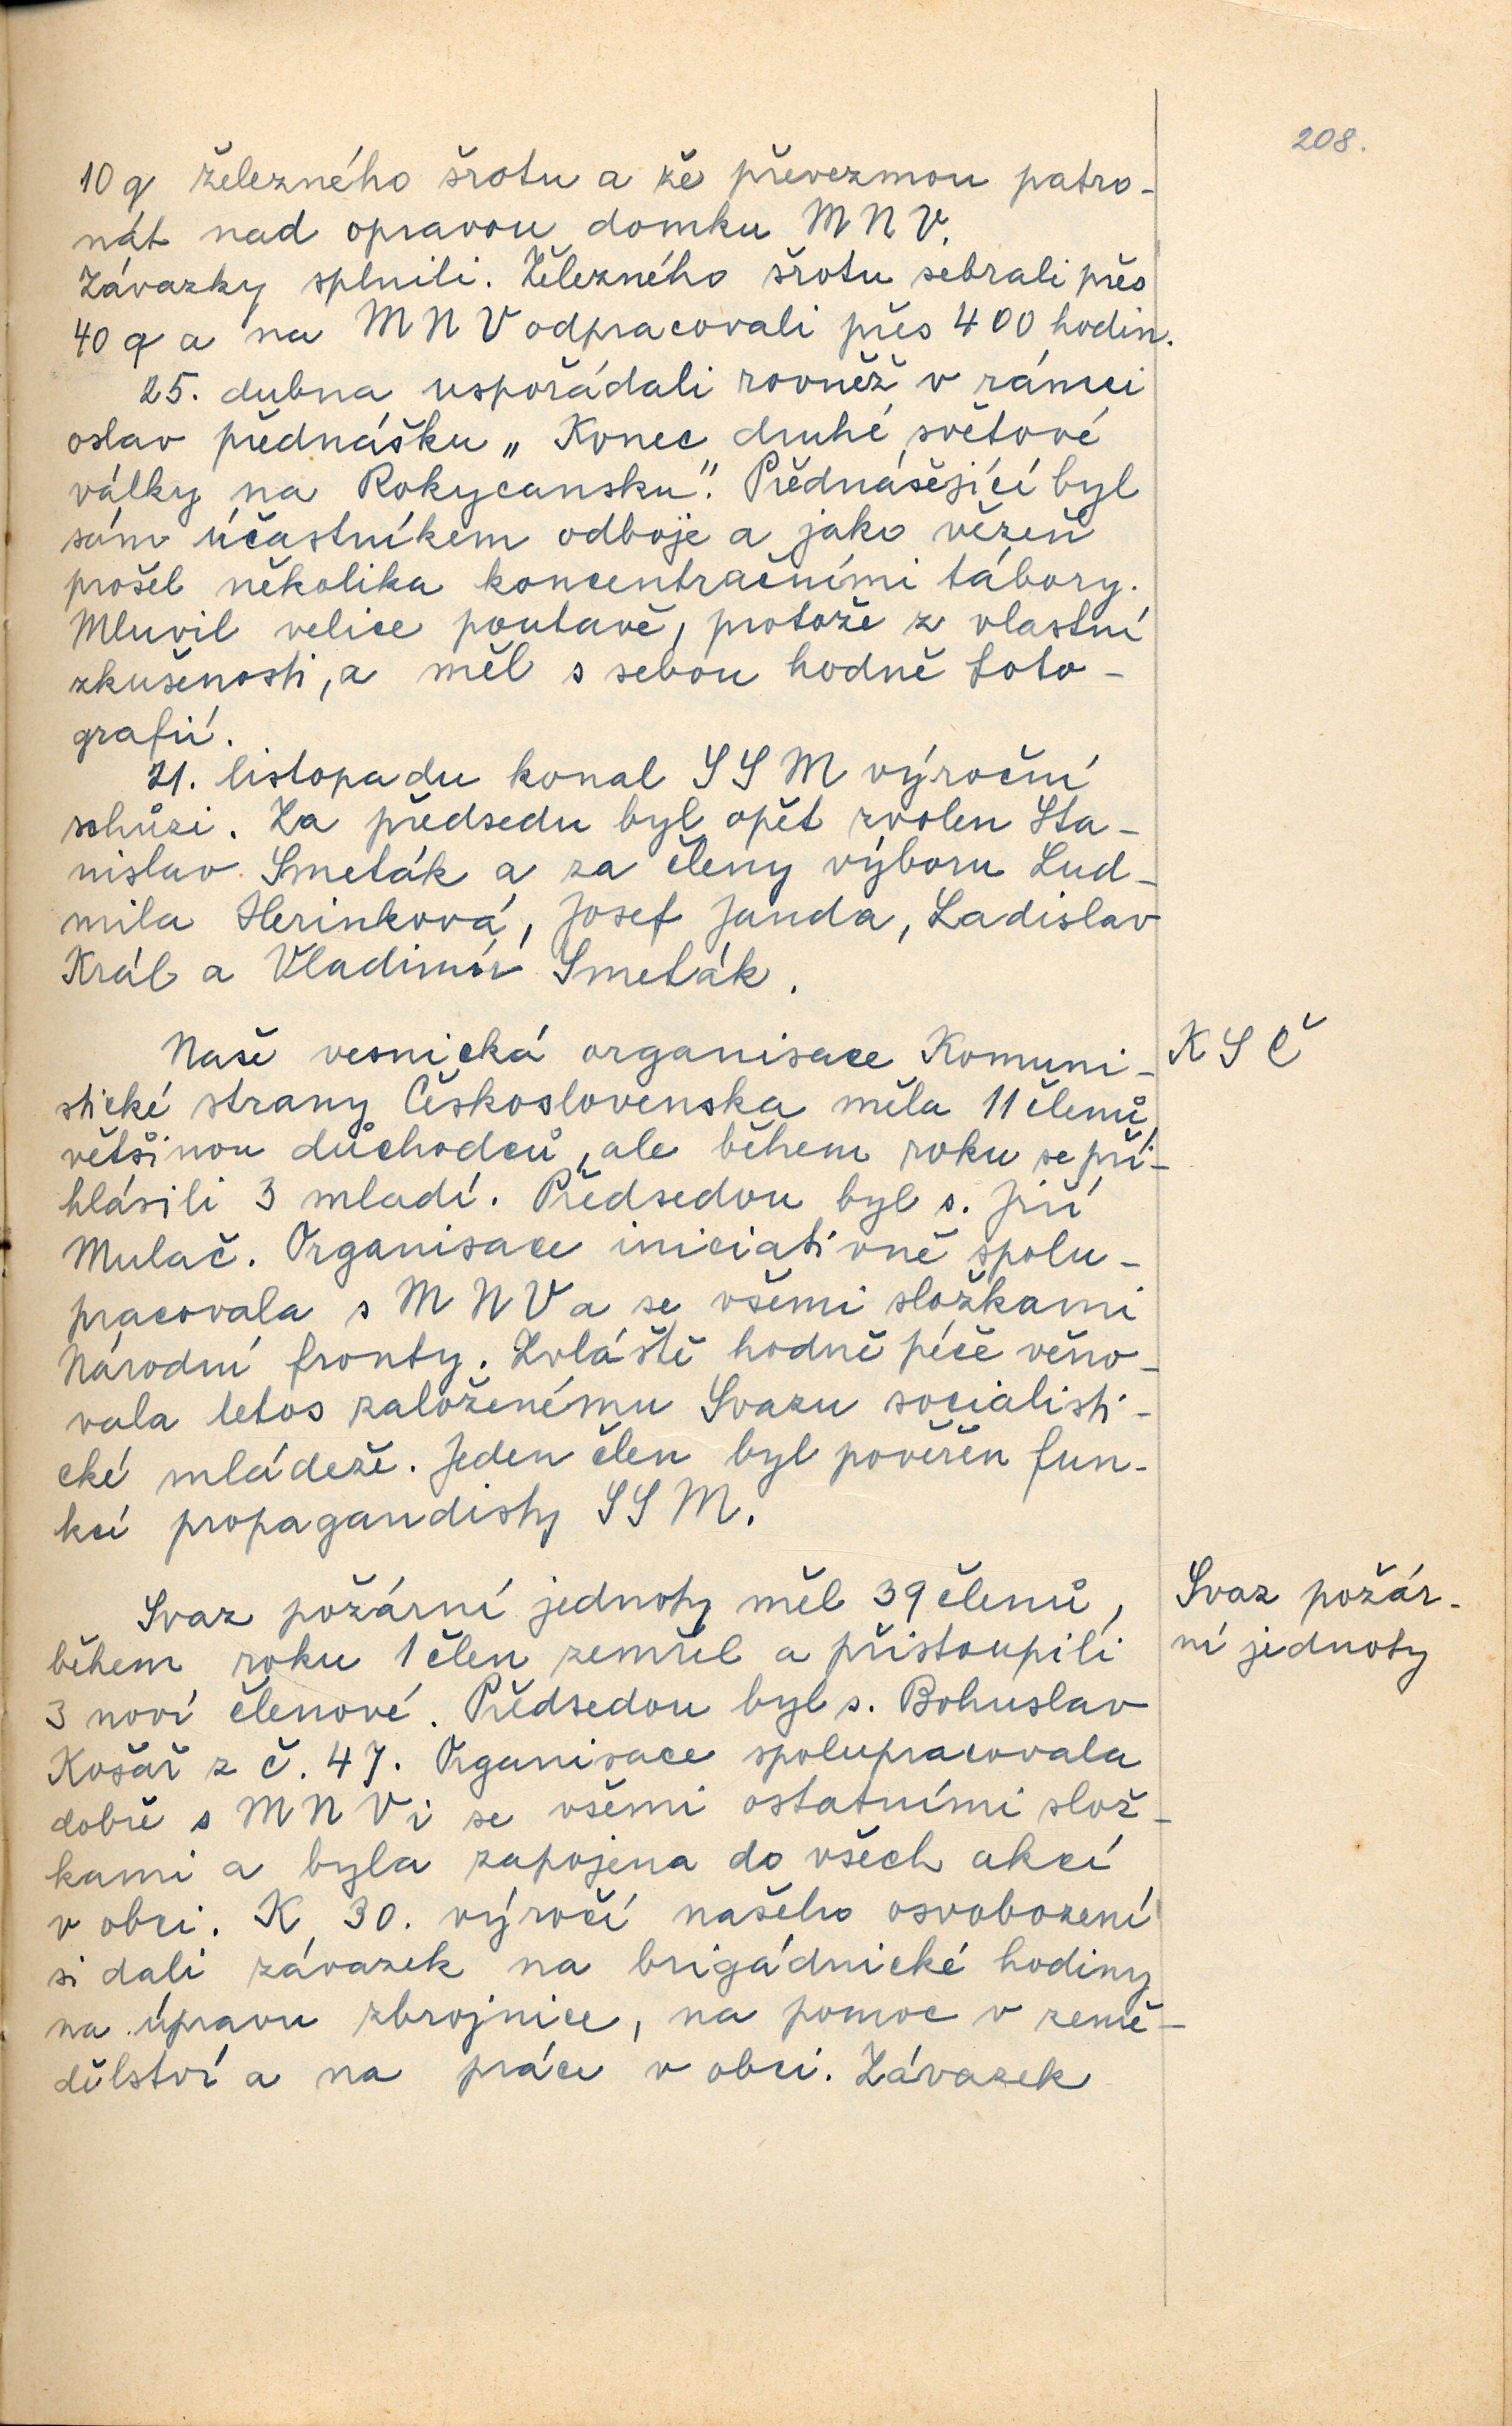 208.
10 q železného šrotu a že převezmou patro-
nát nad opravou domku MNV.
Závazky splnili. Železného šrotu sebrali přes
40 q a na MNV odpracovali přes 400 hodin.
25. dubna uspořádali rovněž v rámci
oslav přednášku „Konec druhé světové
války na Rokycansku". Přednášející byl
sám účastníkem odboje a jako vězeň
prošel několika koncentračními tábory.
Mluvil velice poutavě, protože z vlastní
zkušenosti, a měl s sebou hodně foto-
grafií.
21. listopadu konal SSM výroční
schůzi. Za předsedu byl opět zvolen Sta-
nislav Smeták a za členy výboru Lud-
mila Herinková, Josef Janda, Ladislav
Král a Vladimír Smeták.
Naše vesnická organisace Komuni-
KSČ
stické strany Československa měla 11 členů,
většinou důchodců, ale během roku se při-
hlásili 3 mladí. Předsedou byl s. Jiří
Mulač. Organisace iniciativně spolu-
pracovala s MNV a se všemi složkami
Národní fronty. Zvláště hodně péče věno-
vala letos založenému Svazu socialisti-
cké mládeže. Jeden člen byl pověřen fun-
kcí propagandisty SSM.
Svaz požární jednoty měl 39 členů,
Svaz požár-
během roku 1 člen zemřel a přistoupili
ní jednoty
3 noví členové. Předsedou byl s. Bohuslav
Košař z č. 47. Organisace spolupracovala
dobře s MNV i se všemi ostatními slož-
kami a byla zapojena do všech akcí
v obci. K 30. výročí našeho osvobození
si dali závazek na brigádnické hodiny
na úpravu zbrojnice, na pomoc v země-
dělství a na práci v obci. Závazek